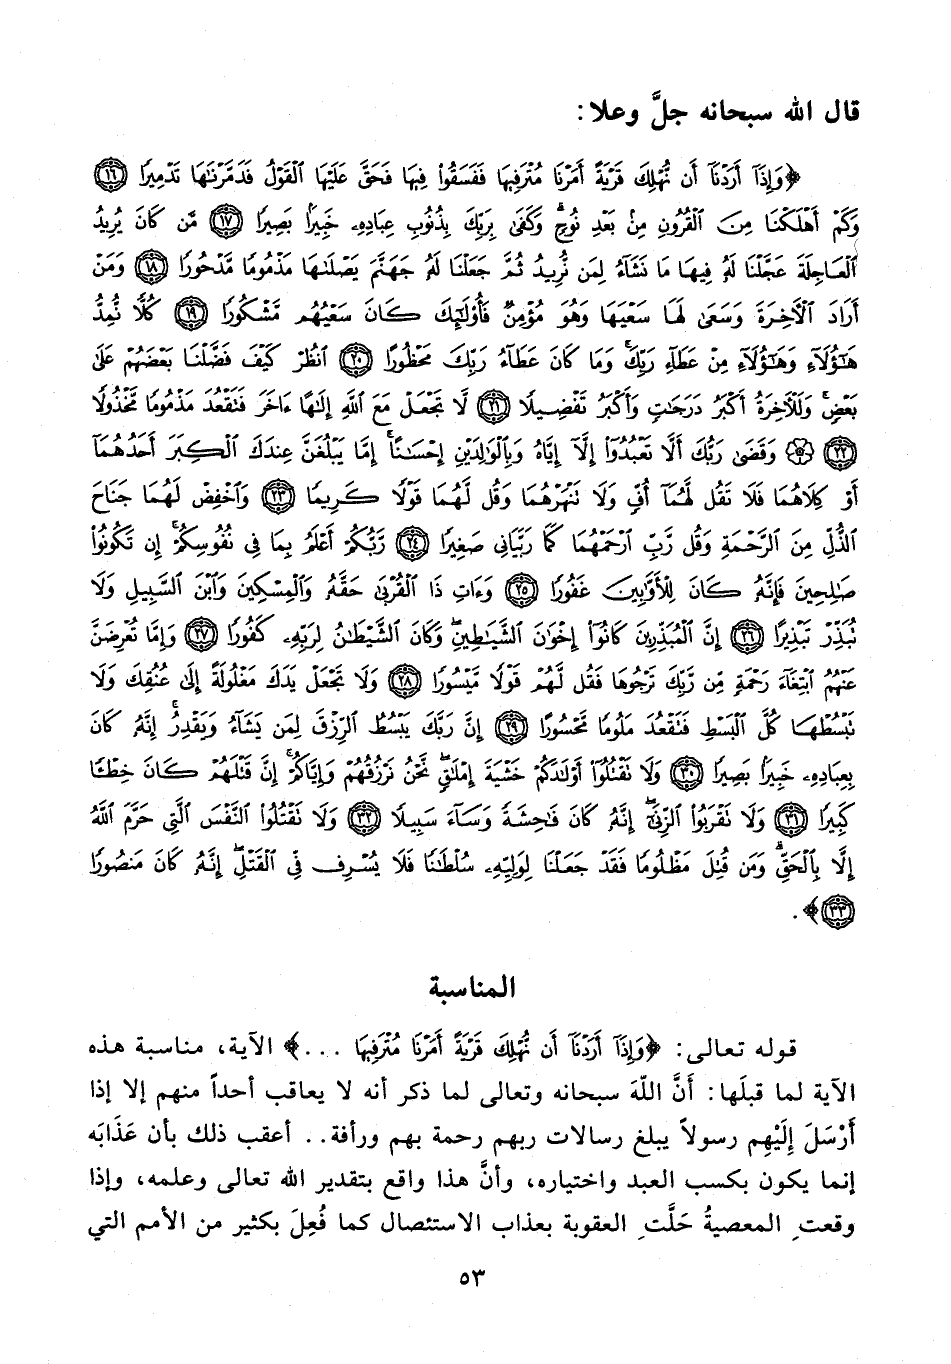 قال الله سبحانه جلَّ وعلا:
﴿وَإِذَآ أَرَدْنَآ أَن نُّهْلِكَ قَرْيَةً أَمَرْنَا مُتْرَفِيهَا فَفَسَقُوا۟ فِيهَا فَحَقَّ عَلَيْهَا ٱلْقَوْلُ فَدَمَّرْنَـٰهَا تَدْمِيرًا ١٦
وَكَمْ أَهْلَكْنَا مِنَ ٱلْقُرُونِ مِنۢ بَعْدِ نُوحٍۗ وَكَفَىٰ بِرَبِّكَ بِذُنُوبِ عِبَادِهِۦ خَبِيرًۢا بَصِيرًا ١٧ مَّن كَانَ يُرِيدُ
ٱلْعَاجِلَةَ عَجَّلْنَا لَهُۥ فِيهَا مَا نَشَآءُ لِمَن نُّرِيدُ ثُمَّ جَعَلْنَا لَهُۥ جَهَنَّمَ يَصْلَىٰهَا مَذْمُومًا مَّدْحُورًا ١٨ وَمَنْ
أَرَادَ ٱلْأَخِرَةَ وَسَعَىٰ لَهَا سَعْيَهَا وَهُوَ مُؤْمِنٌ فَأُو۟لَـٰٓئِكَ كَانَ سَعْيُهُم مَّشْكُورًا ١٩ كُلًّا نُّمِدُّ
هَـٰٓؤُلَآءِ وَهَـٰٓؤُلَآءِ مِنْ عَطَآءِ رَبِّكَۚ وَمَا كَانَ عَطَآءُ رَبِّكَ مَحْظُورًا ٢٠ ٱنظُرْ كَيْفَ فَضَّلْنَا بَعْضَهُمْ عَلَىٰ
بَعْضٍۚ وَلَلْأَخِرَةُ أَكْبَرُ دَرَجَـٰتٍ وَأَكْبَرُ تَفْضِيلًا ٢١ لَّا تَجْعَلْ مَعَ ٱللَّهِ إِلَـٰهًا ءَاخَرَ فَتَقْعُدَ مَذْمُومًا مَّخْذُولًا
٢٢ ۞ وَقَضَىٰ رَبُّكَ أَلَّا تَعْبُدُوٓا۟ إِلَّآ إِيَّاهُ وَبِٱلْوَٰلِدَيْنِ إِحْسَـٰنًاۚ إِمَّا يَبْلُغَنَّ عِندَكَ ٱلْكِبَرَ أَحَدُهُمَآ
أَوْ كِلَاهُمَا فَلَا تَقُل لَّهُمَآ أُفٍّ وَلَا تَنْهَرْهُمَا وَقُل لَّهُمَا قَوْلًا كَرِيمًا ٢٣ وَٱخْفِضْ لَهُمَا جَنَاحَ
ٱلذُّلِّ مِنَ ٱلرَّحْمَةِ وَقُل رَّبِّ ٱرْحَمْهُمَا كَمَا رَبَّيَانِي صَغِيرًا ٢٤ رَّبُّكُمْ أَعْلَمُ بِمَا فِي نُفُوسِكُمْۚ إِن تَكُونُوا۟
صَـٰلِحِينَ فَإِنَّهُۥ كَانَ لِلْأَوَّٰبِينَ غَفُورًا ٢٥ وَءَاتِ ذَا ٱلْقُرْبَىٰ حَقَّهُۥ وَٱلْمِسْكِينَ وَٱبْنَ ٱلسَّبِيلِ وَلَا
تُبَذِّرْ تَبْذِيرًا ٢٦ إِنَّ ٱلْمُبَذِّرِينَ كَانُوٓا۟ إِخْوَٰنَ ٱلشَّيَـٰطِينِۖ وَكَانَ ٱلشَّيْطَـٰنُ لِرَبِّهِۦ كَفُورًا ٢٧ وَإِمَّا تُعْرِضَنَّ
عَنْهُمُ ٱبْتِغَآءَ رَحْمَةٍ مِّن رَّبِّكَ تَرْجُوهَا فَقُل لَّهُمْ قَوْلًا مَّيْسُورًا ٢٨ وَلَا تَجْعَلْ يَدَكَ مَغْلُولَةً إِلَىٰ عُنُقِكَ وَلَا
تَبْسُطْهَا كُلَّ ٱلْبَسْطِ فَتَقْعُدَ مَلُومًا مَّحْسُورًا ٢٩ إِنَّ رَبَّكَ يَبْسُطُ ٱلرِّزْقَ لِمَن يَشَآءُ وَيَقْدِرُۚ إِنَّهُۥ كَانَ
بِعِبَادِهِۦ خَبِيرًۢا بَصِيرًا ٣٠ وَلَا تَقْتُلُوٓا۟ أَوْلَـٰدَكُمْ خَشْيَةَ إِمْلَـٰقٍۖ نَّحْنُ نَرْزُقُهُمْ وَإِيَّاكُمْۚ إِنَّ قَتْلَهُمْ كَانَ خِطْـًٔا
كَبِيرًا ٣١ وَلَا تَقْرَبُوا۟ ٱلزِّنَىٰٓۖ إِنَّهُۥ كَانَ فَـٰحِشَةً وَسَآءَ سَبِيلًا ٣٢ وَلَا تَقْتُلُوا۟ ٱلنَّفْسَ ٱلَّتِي حَرَّمَ ٱللَّهُ
إِلَّا بِٱلْحَقِّۗ وَمَن قُتِلَ مَظْلُومًا فَقَدْ جَعَلْنَا لِوَلِيِّهِۦ سُلْطَـٰنًا فَلَا يُسْرِف فِّي ٱلْقَتْلِۖ إِنَّهُۥ كَانَ مَنصُورًا
٣٣﴾.
المناسبة
قوله تعالى: ﴿وَإِذَآ أَرَدْنَآ أَن نُّهْلِكَ قَرْيَةً أَمَرْنَا مُتْرَفِيهَا ...﴾ الآية، مناسبة هذه
الآية لما قبلَها: أنَّ اللّهَ سبحانه وتعالى لما ذكر أنه لا يعاقب أحداً منهم إلا إذا
أَرْسَلَ إلَيْهِم رسولاً يبلغ رسالات ربهم رحمة بهم ورأفة.. أعقب ذلك بأن عَذَابَه
إنما يكون بكسب العبد واختياره، وأنَّ هذا واقع بتقدير الله تعالى وعلمه، وإذا
وقعتِ المعصيةُ حَلَّتِ العقوبة بعذاب الاستئصال كما فُعِلَ بكثير من الأمم التي
٥٣